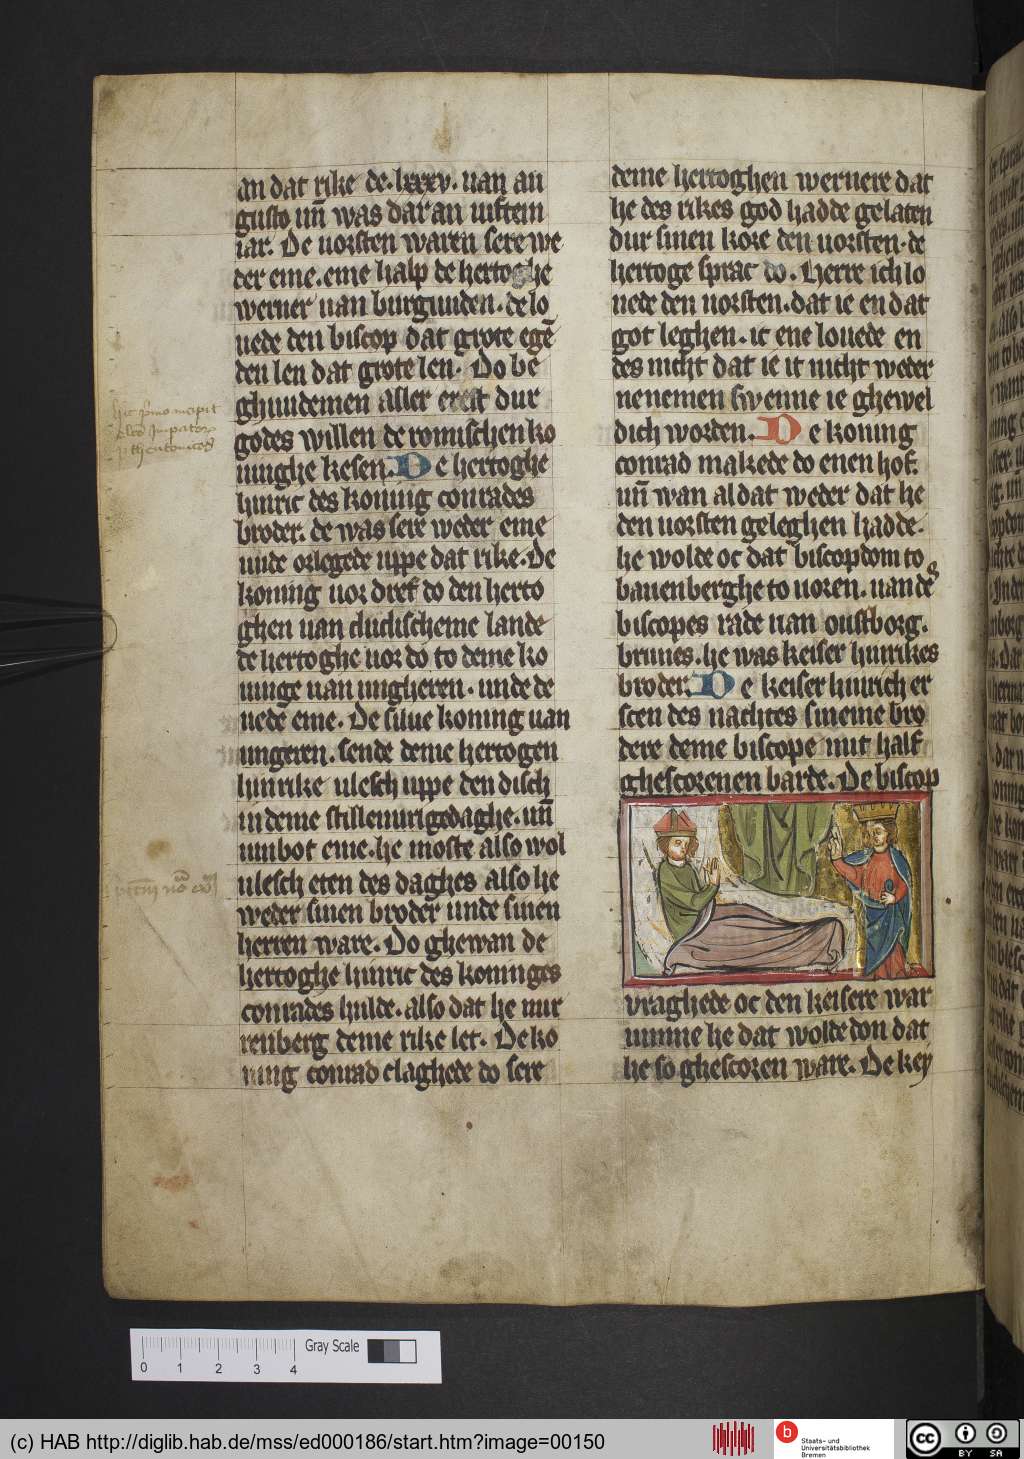 an dat rike de·lxxxv·uan au
gusto uñ was dar an uiftein
iar. De uorsten waren sere we
der eme.eme halp de hertoghe
werner uan burgunden·de lo
uede den biscop dat grote egē
den len dat grote len· Do be
ghundemen aller erest dur
godes willen de romischen ko
ninghe kesen. De hertoghe
hinric des koning conrades
broder. de was sere weder eme
unde orlegede uppe dat rike·De
koning uor dref do den herto
ghen uan dudischeme lande
de hertoghe uor do to deme ko
ninge uan ungheren·unde de
uede eme·De silue koning uan
ungeren.sende deme hertogen
hinrike ulesch uppe den disch
in deme stillen urigedaghe·uñ
umbot eme·he moste also wol
ulesch eten des daghes also he
weder sinen broder unde sinen
herren ware. Do ghewan de
hertoghe hinric des koninges
conrades hulde·also dat he nur
renberg deme rike let· De ko
ning conrad claghede do sere
deme hertoghen wernere dat
he des rikes god hadde gelaten
dur sinen kore den uorsten·de
hertoge sprac do. Herre ich lo
uede den uorsten.dat ie en dat
got leghen·ic ene louede en
des nicht dat ie it nicht weder
nenemen swenne ie ghewel
dich worden. De koning
conrad makede do enen hof.
uñ wan al dat weder dat he
den uorsten geleghen hadde.
he wolde oc dat biscopdom to
bauenberghe to uoren·uan des
biscopes rade uan oustborg.
brunes.he was keiser hinrikes
broder. De keiser hinrich er
scen des nachtes sineme bro
dere deme biscope mit half
ghescorenen barde. De biscop
vraghede oc den keisere war
umme he dat wolde don dat
he so ghescoren ware. De key
hic primo incipit
Gray Scale
0 1 2 3 4
(c) HAB http://diglib.hab.de/mss/ed000186/start.htm?image=00150
Staats- und
Universitätsbibliothek
Bremen
cc BY SA